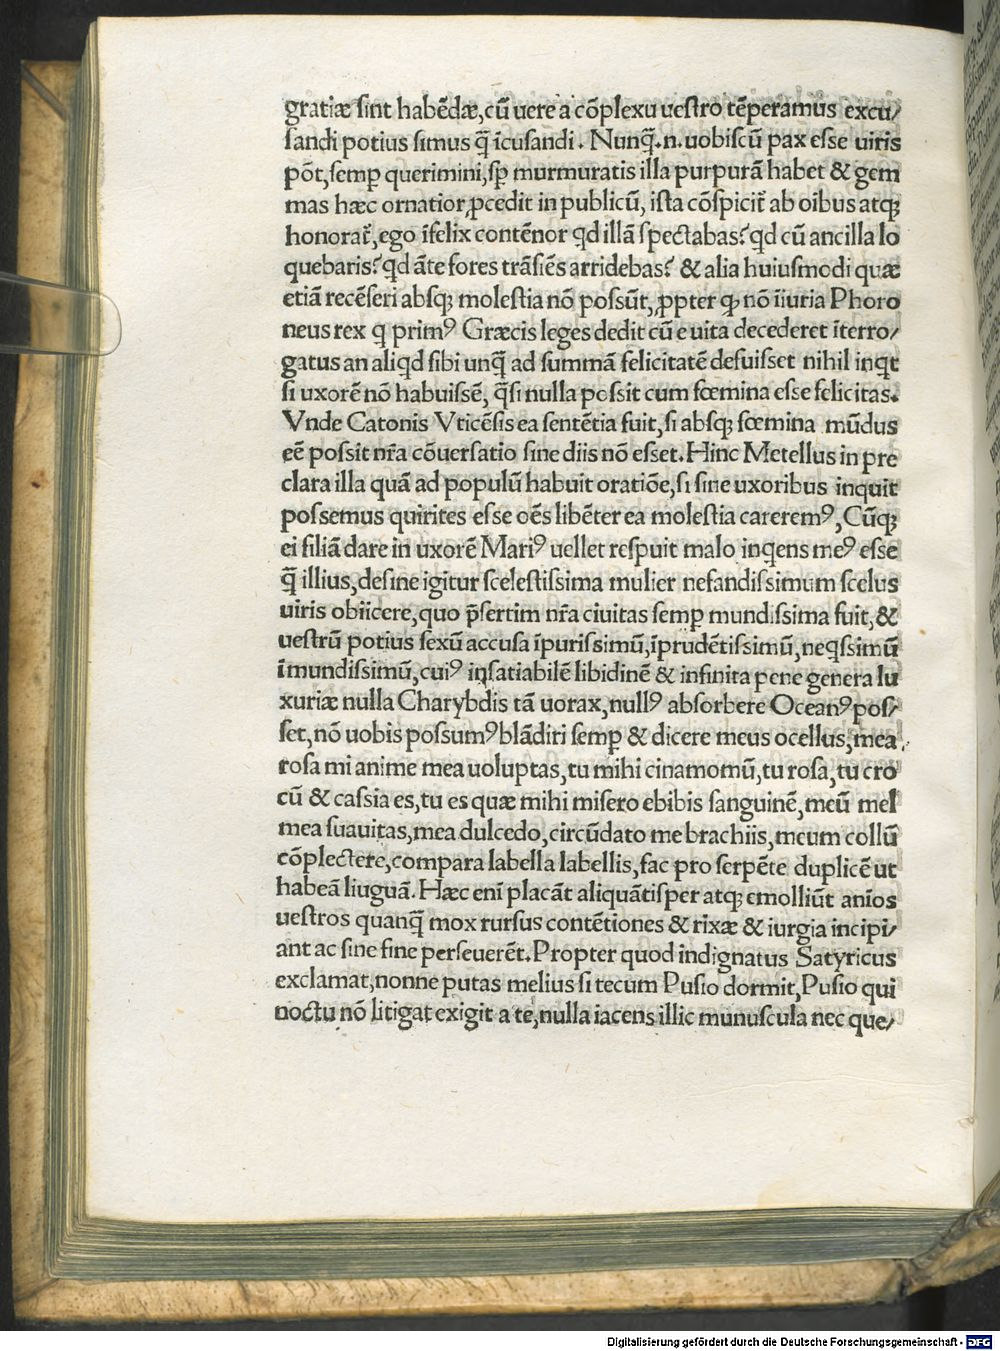 gratiæ ſint habẽdæ,cũ uere a cõplexu ueſtro tẽperamus excu/
ſandi potius ſimus q̃ ĩcuſandi. Nunq̃.n.uobiſcũ pax eſſe uiris
põt,ſemꝑ querimini,ſꝑ murmuratis illa purpurã habet & gem
mas hæc ornatior ꝓcedit in publicũ, iſta cõſpicit̃ ab oibus atqꝫ
honorat̃,ego ĩfelix contẽnor qd illã ſpectabas? qd cũ ancilla lo
quebaris? qd ãte fores trãſiẽs arridebas? & alia huiuſmodi quæ
etiã recẽſeri abſqꝫ moleſtia nõ poſſũt, ꝓpter qꝫ nõ ĩiuria Phoro
neus rex q primꝰ Græcis leges dedit cũ e uita decederet ĩterro/
gatus an aliqd ſibi unq̃ ad ſummã felicitatẽ defuiſſet nihil inqt
ſi uxorẽ nõ habuiſſẽ, q̃ſi nulla poſſit cum fœmina eſſe felicitas.
Vnde Catonis Vticẽſis ea ſentẽtia fuit,ſi abſqꝫ fœmina mũdus
eẽ poſſit nr̃a cõuerſatio ſine diis nõ eſſet. Hinc Metellus in pre
clara illa quã ad populũ habuit oratiõe,ſi ſine uxoribus inquit
poſſemus quirites eſſe oẽs libẽter ea moleſtia careremꝰ, Cũqꝫ
ei filiã dare in uxorẽ Mariꝰ uellet reſpuit malo inqens meꝰ eſſe
q̃ illius, deſine igitur ſceleſtiſſima mulier nefandiſſimum ſcelus
uiris obiicere, quo p̃ſertim nr̃a ciuitas ſemꝑ mundiſſima fuit, &
ueſtrũ potius ſexũ accuſa ĩpuriſſimũ,ĩprudẽtiſſimũ,neqſſimũ
ĩmundiſſimũ,cuiꝰ inſatiabilẽ libidinẽ & infinita pene genera lu
xuriæ nulla Charybdis tã uorax,nullꝰ abſorbere Oceanꝰ poſ/
ſet,nõ uobis poſſumꝰ blãdiri ſemꝑ & dicere meus ocellus,mea
roſa mi anime mea uoluptas,tu mihi cinamomũ,tu roſa,tu cro
cũ & caſſia es,tu es quæ mihi miſero ebibis ſanguinẽ,meũ mel
mea ſuauitas,mea dulcedo,circũdato me brachiis,meum collũ
cõplectere,compara labella labellis,fac pro ſerpẽte duplicẽ ut
habeã liuguã. Hæc enĩ placãt aliquãtiſper atqꝫ emolliũt anĩos
ueſtros quanq̃ mox rurſus contẽtiones & rixæ & iurgia incipi/
ant ac ſine fine perſeuerẽt. Propter quod indignatus Satyricus
exclamat,nonne putas melius ſi tecum Puſio dormit,Puſio qui
noctu nõ litigat exigit a te,nulla iacens illic munuſcula nec que/
Digitalisierung gefördert durch die Deutsche Forschungsgemeinschaft - DFG